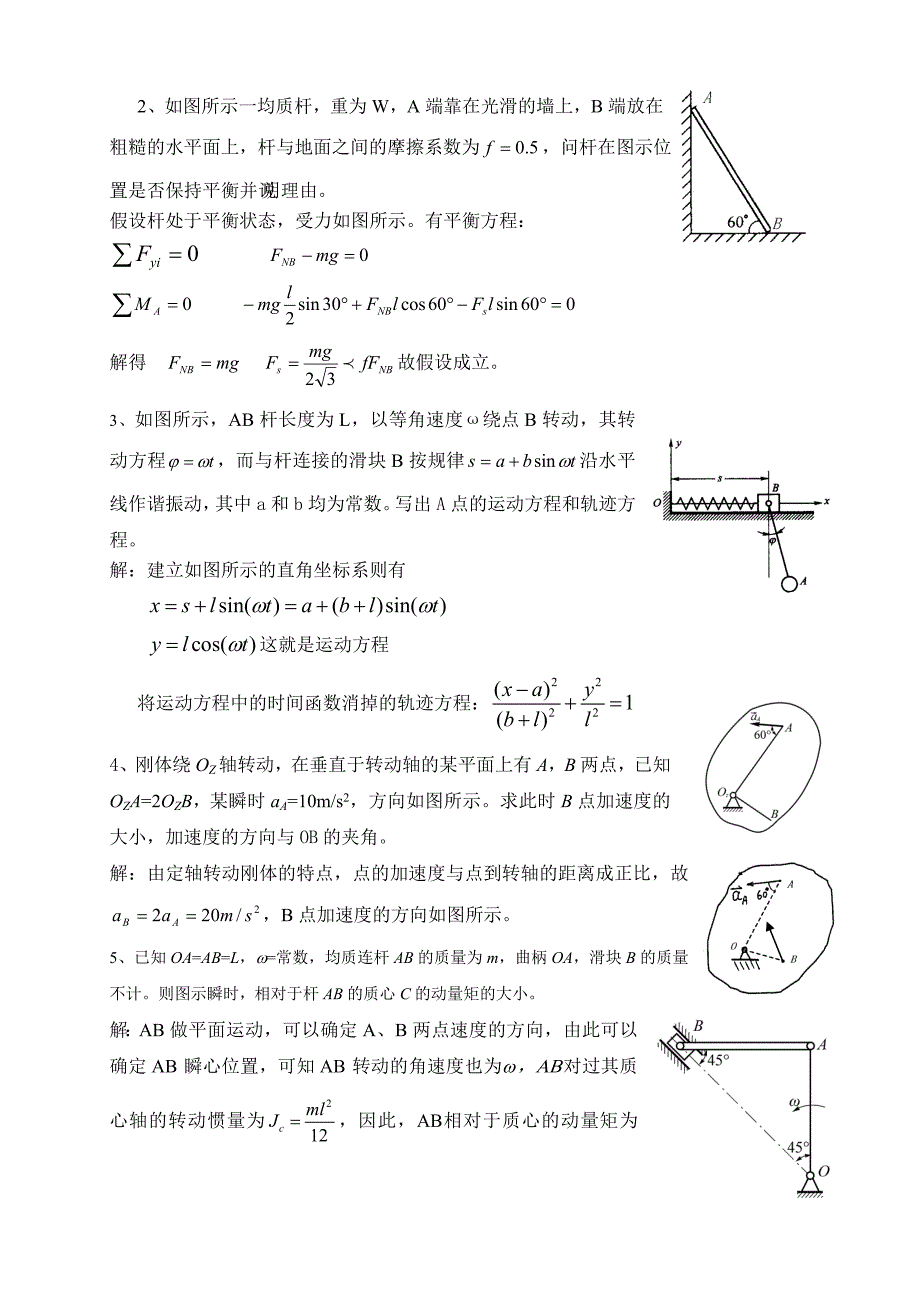 2、如图所示一均质杆，重为 W，A 端靠在光滑的墙上，B 端放在
粗糙的水平面上，杆与地面之间的摩擦系数为 f = 0.5，问杆在图示位
置是否保持平衡并说明理由。
A
60°
B
假设杆处于平衡状态，受力如图所示。有平衡方程：
∑F_{yi} = 0 F_{NB} − mg = 0
∑M_A = 0 −mg \frac{l}{2} sin 30° + F_{NB} l cos 60° − F_s l sin 60° = 0
解得 F_{NB} = mg F_s = \frac{mg}{2√3} ≺ fF_{NB} 故假设成立。
3、如图所示，AB 杆长度为 L，以等角速度 ω 绕点 B 转动，其转
动方程 φ = ωt，而与杆连接的滑块 B 按规律 s = a + b sin ωt 沿水平
线作谐振动，其中 a 和 b 均为常数。写出 A 点的运动方程和轨迹方
程。
y
s
B
O
x
φ
A
解：建立如图所示的直角坐标系则有
x = s + l sin(ωt) = a + (b + l) sin(ωt)
y = l cos(ωt) 这就是运动方程
将运动方程中的时间函数消掉的轨迹方程：\frac{(x − a)^2}{(b + l)^2} + \frac{y^2}{l^2} = 1
4、刚体绕 O_Z 轴转动，在垂直于转动轴的某平面上有 A，B 两点，已知
O_ZA=2O_ZB，某瞬时 a_A=10m/s²，方向如图所示。求此时 B 点加速度的
大小，加速度的方向与 OB 的夹角。
a_A
60°
A
O_z
B
解：由定轴转动刚体的特点，点的加速度与点到转轴的距离成正比，故
a_B = 2a_A = 20m / s²，B 点加速度的方向如图所示。
a_A
60°
A
O
B
5、已知 OA=AB=L，ω=常数，均质连杆 AB 的质量为 m，曲柄 OA，滑块 B 的质量
不计。则图示瞬时，相对于杆 AB 的质心 C 的动量矩的大小。
解: AB 做平面运动，可以确定 A、B 两点速度的方向，由此可以
确定 AB 瞬心位置，可知 AB 转动的角速度也为 ω，AB 对过其质
心轴的转动惯量为 J_c = \frac{ml^2}{12}，因此，AB相对于质心的动量矩为
B
A
45°
ω
45°
O